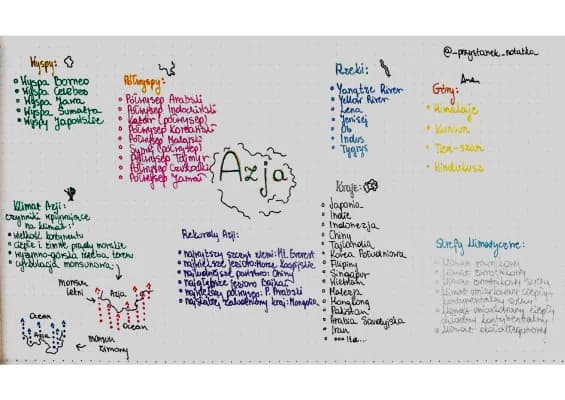 @_przystanek_notatka
Wyspy:
Wyspa Borneo
Wyspa Celebes
Wyspa Jawa
Wyspa Sumatra
Wyspy Japońskie
Półwyspy:
Półwysep Arabski
Półwysep Indochiński
Katar (półwysep)
Półwysep Koreański
Półwysep Malajski
Synaj (półwysep)
Półwysep Tajmyr
Półwysep Czukocki
Półwysep Jamał
Rzeki:
Yangtze River
Yellow River
Lena
Jenisej
Ob
Indus
Tygrys
Góry:
Himalaje
Tien-szan
Hindukusz
Azja
Klimat Azji:
czynniki wpływające
na klimat:
wielkość kontynentu
ciepłe i zimne prądy morskie
wyżynno-górska rzeźba terenu
cyrkulacja monsunowa:
monsun
letni
Azja
ocean
ocean
Azja
monsun
zimowy
Rekordy Azji:
najwyższy szczyt ziemi: Mt. Everest
największe jezioro: Morze Kaspijskie
najludniejsze państwo: Chiny
najgłębsze jezioro: Bajkał
największy półwysep: P. Arabski
najsłabiej zaludniony kraj: Mongolia
Kraje:
Japonia
Indie
Indonezja
Chiny
Tajlandia
Korea Południowa
Filipiny
Singapur
Wietnam
Malezja
Hongkong
Pakistan
Arabia Saudyjska
Iran
Itd...
Strefy klimatyczne: